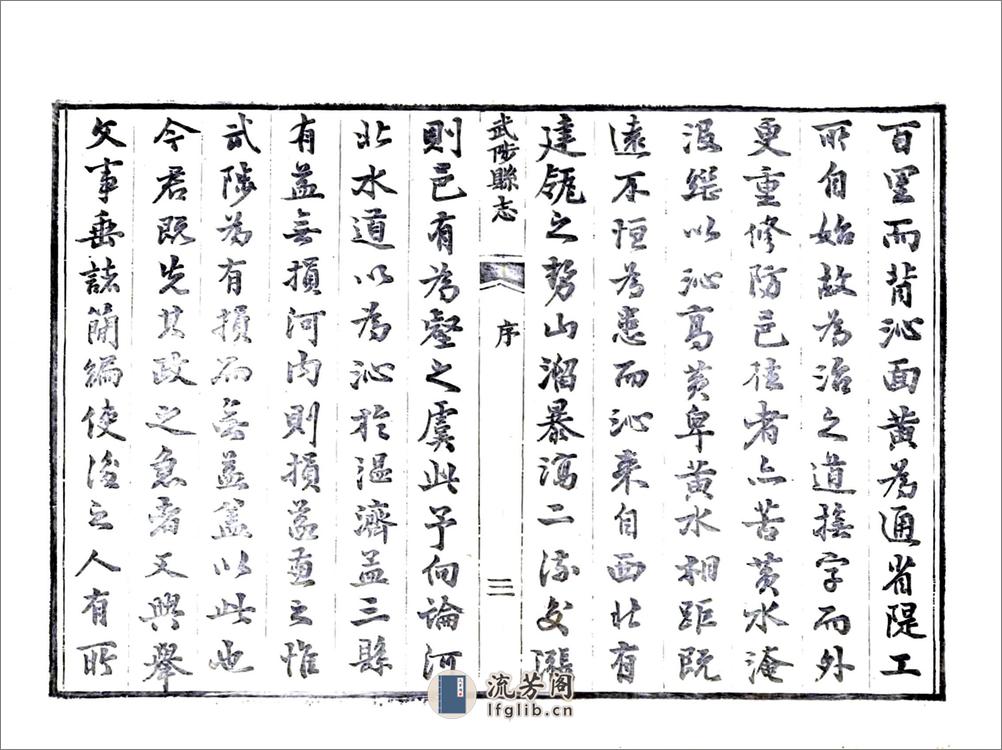 百里而背沁面黄為通省隄工
所自始故為治之道撫字而外
更重修防已徃者亦苦黄水淹
沒繼以沁高黄卑黄水相距既
遠不恒為患而沁来自西北有
建瓴之勢山溜暴瀉二流交漲
武陟縣志
序
三
則邑有為壑之虞此予向論河
北水道以為沁於温濟孟三縣
有益無損河内則損益兼之惟
武陟為有損而無益蓋以此也
今君既先其政之急者又興舉
文事垂誌簡編使後之人有所
流芳阁
lfglib.cn